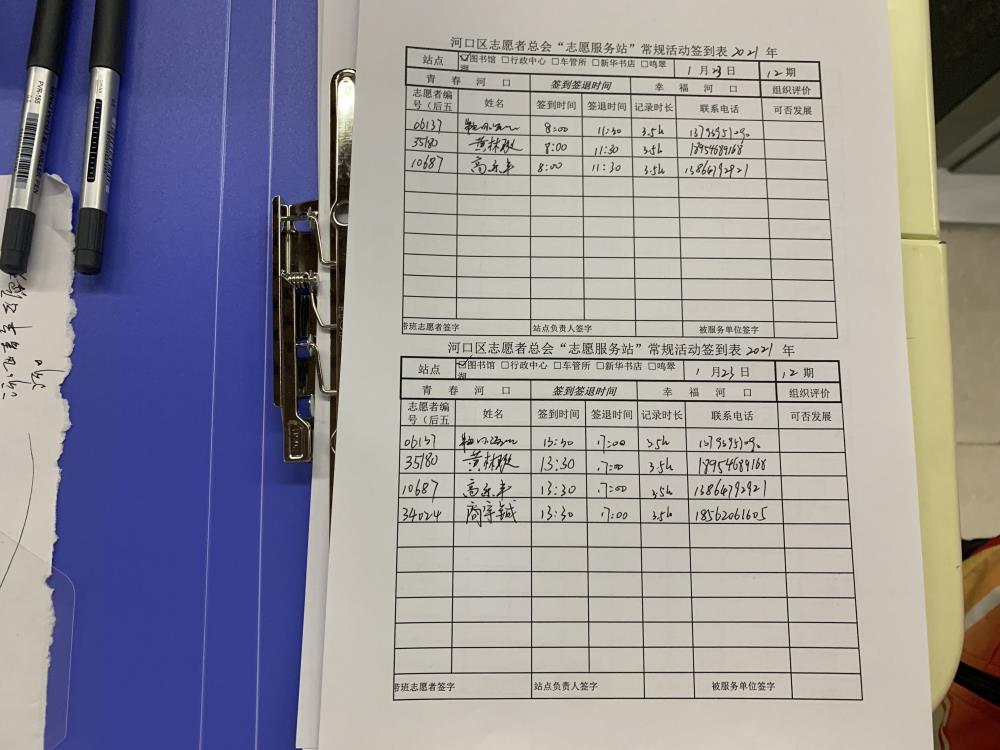 河口区志愿者总会“志愿服务站”常规活动签到表 2021 年
站点 ☑图书馆 □行政中心 □车管所 □新华书店 □鸣翠湖 1 月 23 日 12 期
青 春 河 口 签到签退时间 幸 福 河 口 组织评价
志愿者编号（后五 姓名 签到时间 签退时间 记录时长 联系电话 可否发展
06137 8:00 11:30 3.5h
35180 黄林 8:00 11:30 3.5h 18954689168
10687 高 8:00 11:30 3.5h 13864792921
带班志愿者签字 站点负责人签字 被服务单位签字
河口区志愿者总会“志愿服务站”常规活动签到表 2021 年
站点 ☑图书馆 □行政中心 □车管所 □新华书店 □鸣翠湖 1 月 23 日 12 期
青 春 河 口 签到签退时间 幸 福 河 口 组织评价
志愿者编号（后五 姓名 签到时间 签退时间 记录时长 联系电话 可否发展
06137 13:30 17:00 3.5h
35180 黄林 13:30 17:00 3.5h 18954689168
10687 高 13:30 17:00 3.5h 13864792921
34024 商宇 13:30 17:00 3.5h 18562061605
带班志愿者签字 站点负责人签字 被服务单位签字